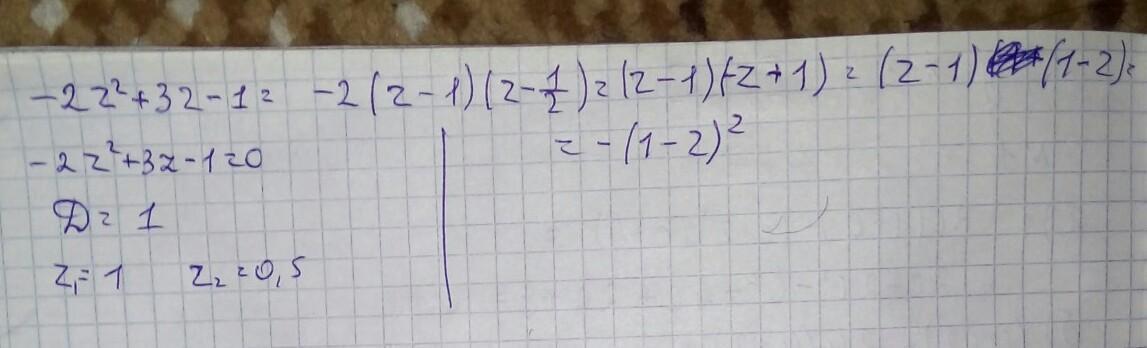 -2z²+3z-1= -2(z-1)(z-1/2)=(z-1)(-z+1)=(z-1)(1-z)=
=-(1-z)²
-2z²+3z-1=0
D=1
z₁=1 z₂=0,5